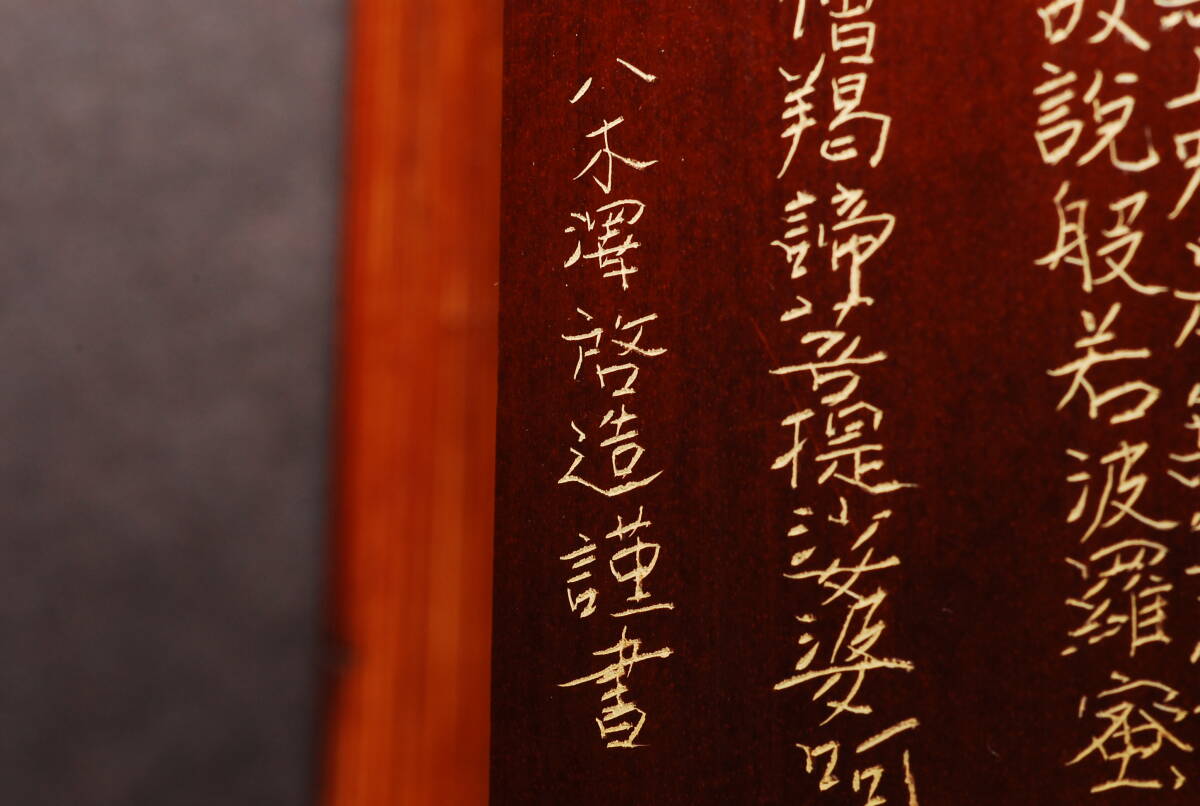 故說般若波羅蜜
僧羯諦菩提娑婆呵
八木澤啓造謹書